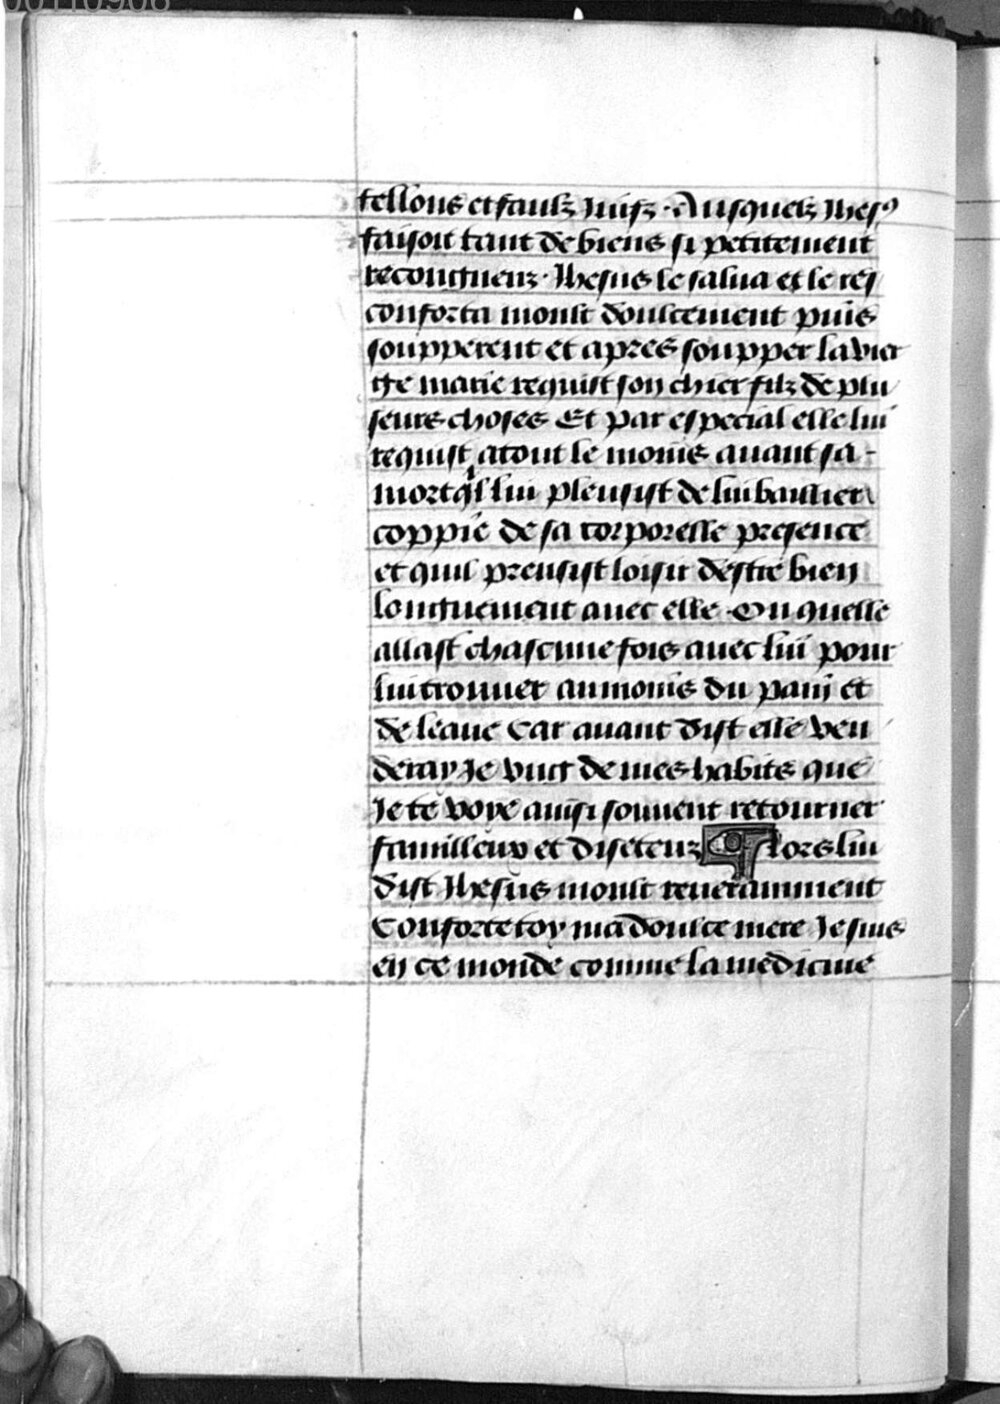 fellons et faulz Juifz. Ausquelz Jhesꝰ
faisoit tant de biens si petitement
recongneuz. Jhesus le salua et le res
conforta moult doulcement puis
soupperent et apres soupper la vier
ge marie requist son chier filz de plu
seurs choses Et par especial elle lui
requist atout le moins auant sa
mort ql lui pleusist de lui baillier
coppie de sa corporelle presence
et quil preusist loisir destre bien
longuement auec elle. Ou quelle
allast chascune fois auec lui pour
lui trouuer au moins du pain et
de leaue Car auant dist elle ven
deray Je vng de mes habits que
Je te voye ainsi souuent retourner
familleux et diseteux Alors lui
dist Jhesus moult reueramment
Conforte toy ma doulce mere Je suis
en ce monde comme la medicine